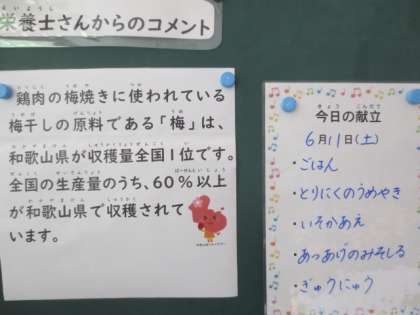 栄養士さんからのコメント
鶏肉の梅焼きに使われている
梅干しの原料である「梅」は、
和歌山県が収穫量全国1位です。
全国の生産量のうち、60%以上
が和歌山県で収穫されて
います。
今日の献立
6月11日(土)
・ごはん
・とりにくのうめやき
・いそかあえ
・あつあげのみそしる
・ぎゅうにゅう